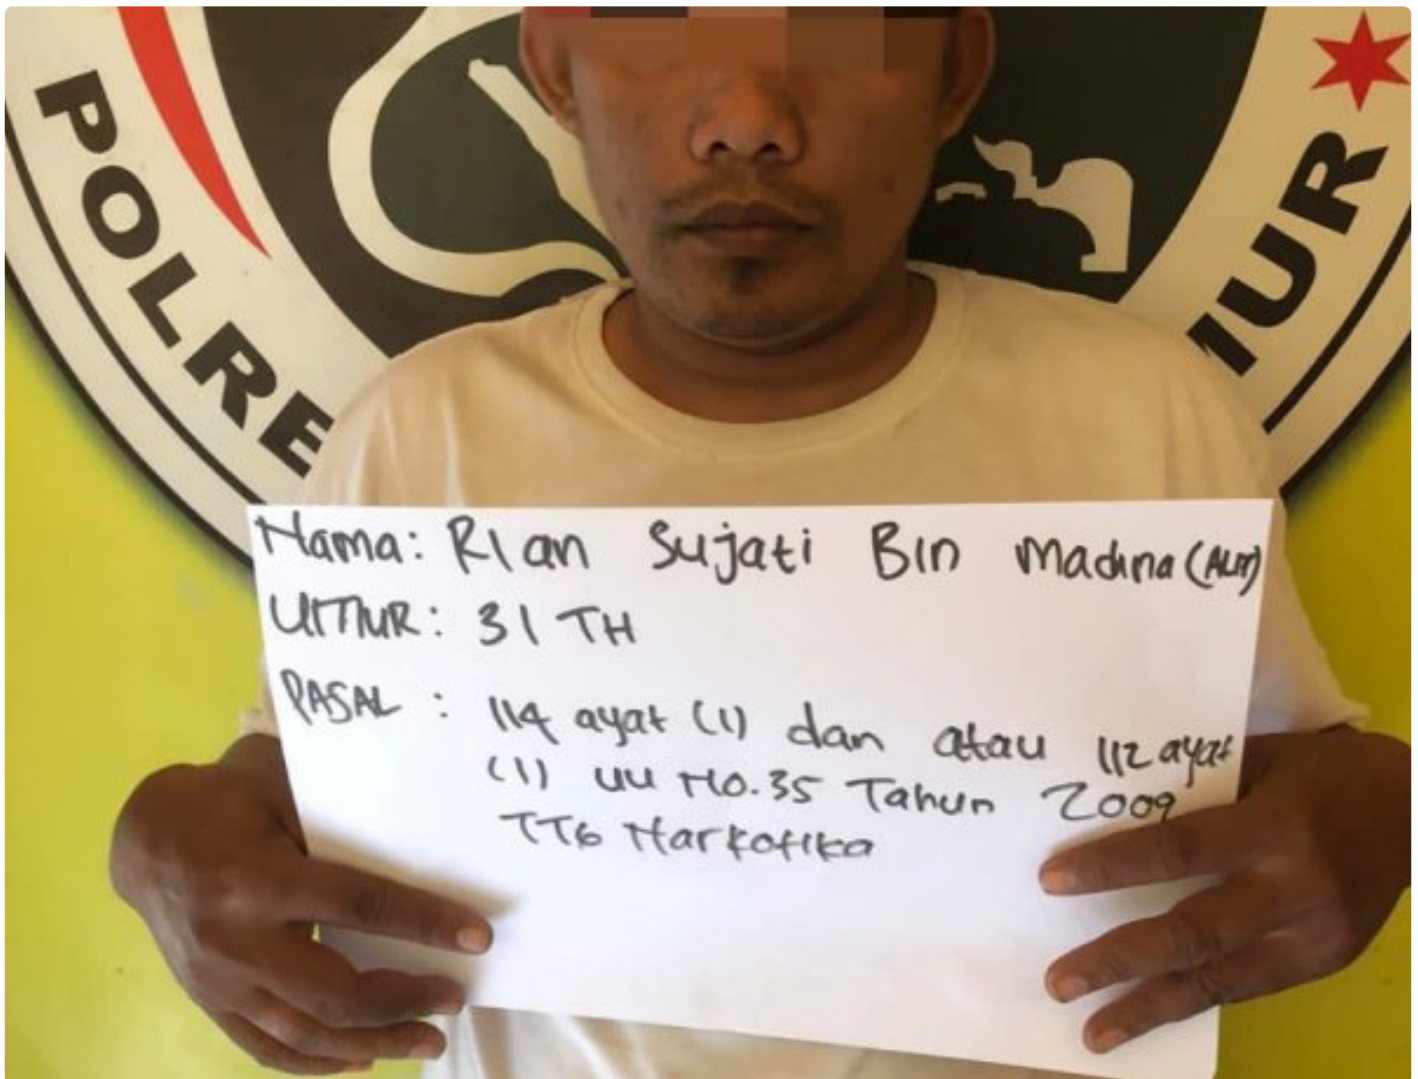 POLRE
MUR
Nama: Rian Sujati Bin Madina (ALM)
UMUR: 31 TH
PASAL : 114 ayat (1) dan atau 112 ayat
(1) UU No.35 Tahun 2009
TTG Narkotika